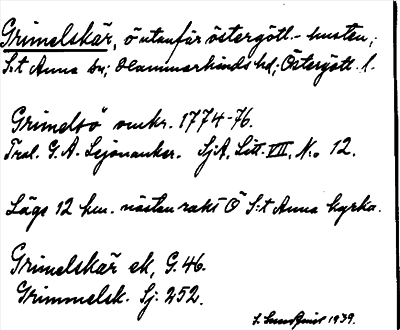 Grimelskär, ö utanför östergötl.-kusten;
S:t Anna sn; Hammarkinds hd; Östergötl. l.
Grimelsö omkr. 1774-76.
Tral. G. A. Lejonanker. SjA, Litt. VIII, No 12.
Läge 12 km. nästan rakt Ö S:t Anna kyrka.
Grimelskär ek, G. 46.
Grimmelsk. Sj. 252.
1939.